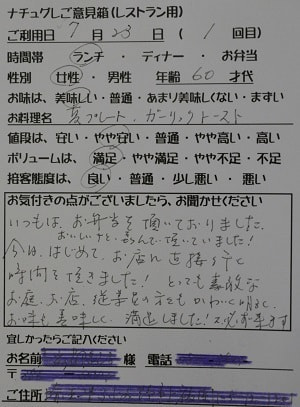 ナチュグレご意見箱(レストラン用)
ご利用日 7月23日( 1 回目)
時間帯 ランチ・ディナー・お弁当
性別 女性・男性 年齢 60 才代
お味は、美味しい・普通・あまり美味しくない・まずい
お料理名 プレート・ガーリックトースト
値段は、安い・やや安い・普通・やや高い・高い
ボリュームは、満足・やや満足・やや不足・不足
接客態度は、良い・普通・少し悪い・悪い
お気付きの点がございましたら、お聞かせください
いつもは、お弁当を頂いておりました。
おいしいナと、喜んで頂いていました!
今日、はじめて、お店に直接行く
時間を頂きました! とっても素敵な
お庭、お店、従業員の方ともかわいく明るく、
お味も美味しく、満足しました!又、必ず来ます
宜しかったらご記入ください
お名前 様 電話
〒
ご住所